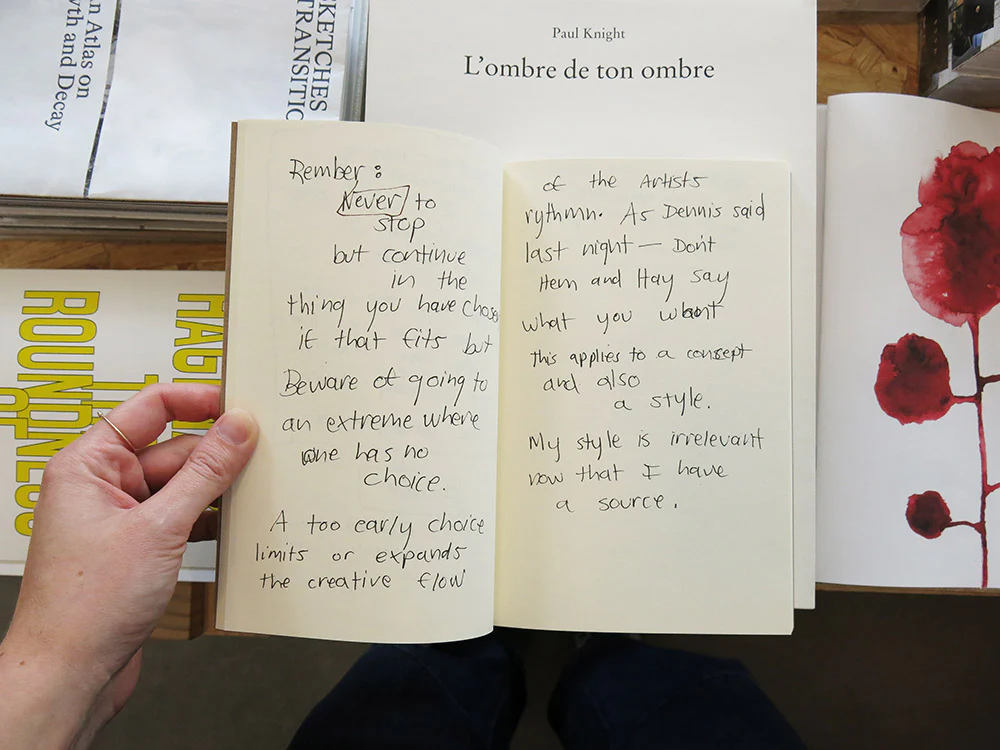 n Atlas on
wth and Decay
KETCHES
TRANSITIO
Paul Knight
L'ombre de ton ombre
ROUNDNESS
Rember :
Never to
stop
but continue
in the
thing you have chose
if that fits but
Beware of going to
an extreme where
one has no
choice.
A too early choice
limits or expands
the creative flow
of the Artists
rythmn. As Dennis said
last night — Don't
Hem and Hay say
what you want
This applies to a concept
and also
a style.
My style is irrelevant
now that I have
a source.